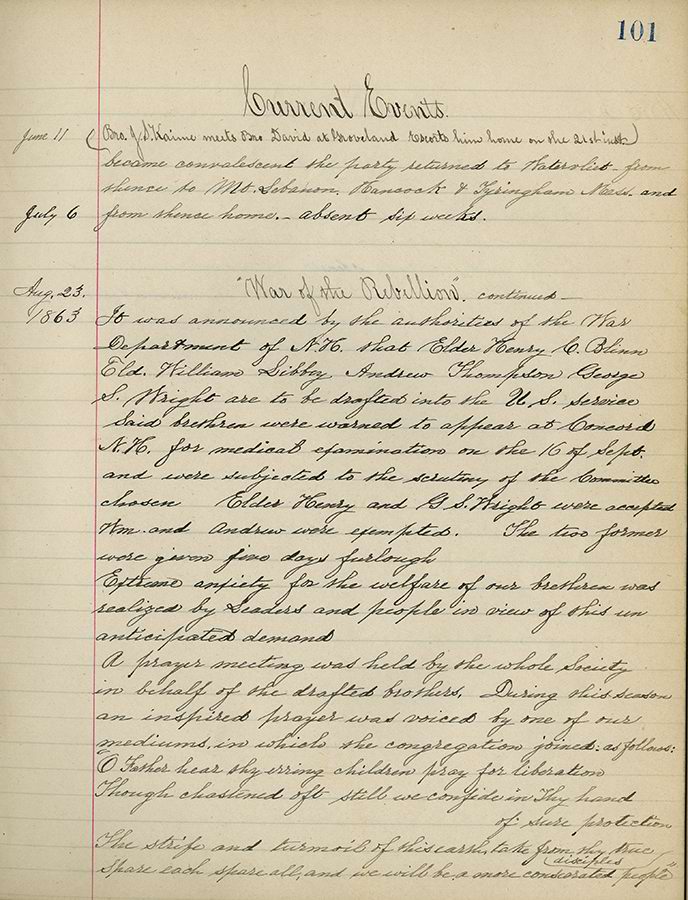 101
Current Events.
June 11 (Bro. J. S. Kaime meets Bro David at Groveland escorts him home on the 21st inst.)
became convalescent the party returned to Watervliet - from
thence to Mt. Lebanon, Hancock & Tyringham Mass. and
July 6 from thence home. - absent six weeks.
"War of the Rebellion". continued -
Aug. 23.
1863 It was announced by the authorities of the War
Department of N.H. that Elder Henry C. Blinn
Eld. William Libbey Andrew Thompson George
S. Wright are to be drafted into the U.S. service
Said brethren were warned to appear at Concord
N.H. for medical examination on the 16 of Sept.
and were subjected to the scrutiny of the Committee
chosen Elder Henry and G. S. Wright were accepted
Wm. and Andrew were exempted. The two former
were given five days furlough
Extreme anxiety for the welfare of our brethren was
realized by Leaders and people in view of this un
anticipated demand
A prayer meeting was held by the whole Society
in behalf of the drafted brothers. During this season
an inspired prayer was voiced by one of our
mediums, in which the congregation joined: as follows:
"O Father hear thy erring children pray for liberation
Though chastened oft still we confide in Thy hand
of sure protection
The strife and turmoil of this earth, take from thy true
disciples
Spare each spare all, and we will be a more consecrated people"